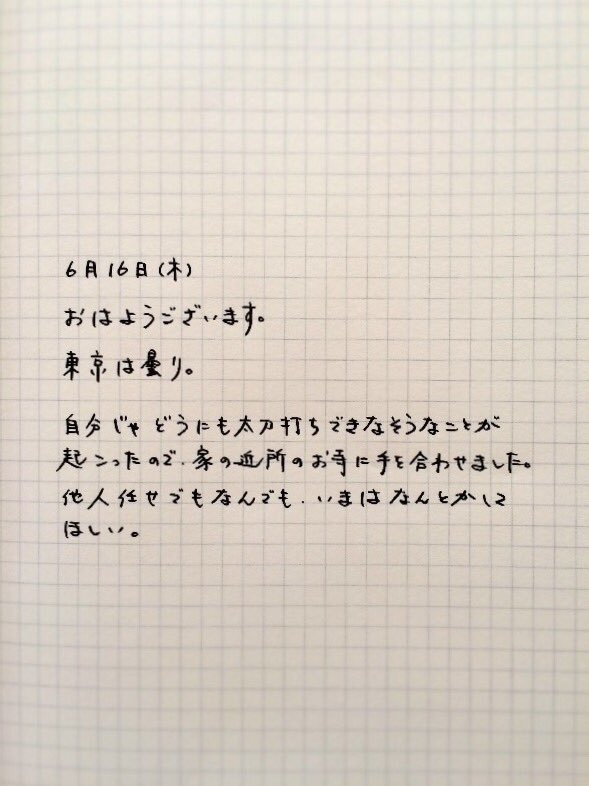 6月16日(木)
おはようございます。
東京は曇り。
自分じゃどうにも太刀打ちできなそうなことが
起こったので、家の近所のお寺に手を合わせました。
他人任せでもなんでも、いまはなんとかして
ほしい。